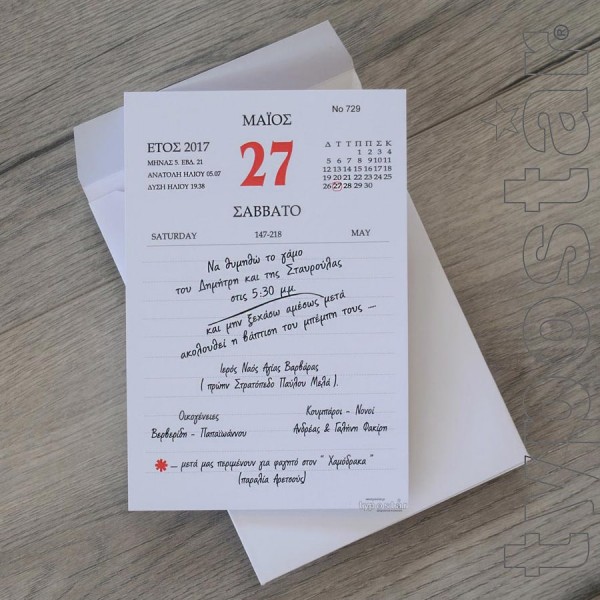 No 729
ΜΑΪΟΣ
ΕΤΟΣ 2017
ΜΗΝΑΣ 5. ΕΒΔ. 21
ΑΝΑΤΟΛΗ ΗΛΙΟΥ 05.07
ΔΥΣΗ ΗΛΙΟΥ 19.38
27
Δ Τ Τ Π Π Σ Κ
1 2 3 4
5 6 7 8 9 10 11
12 13 14 15 16 17 18
19 20 21 22 23 24 25
26 27 28 29 30
ΣΑΒΒΑΤΟ
SATURDAY 147-218 MAY
Να θυμηθώ το γάμο
του Δημήτρη και της Σταυρούλας
στις 5:30 μ.μ.
και μην ξεχάσω αμέσως μετά
ακολουθεί η βάπτιση του μπέμπη τους ...
Ιερός Ναός Αγίας Βαρβάρας
( πρώην Στρατόπεδο Παύλου Μελά ).
Οικογένειες
Βερβερίδη - Παπαϊωάννου
Κουμπάροι - Νονοί
Ανδρέας & Γαλήνη Φακίρη
* ... μετά μας περιμένουν για φαγητό στον " Χαμόδρακα "
(παραλία Αρετσούς)
typostar®